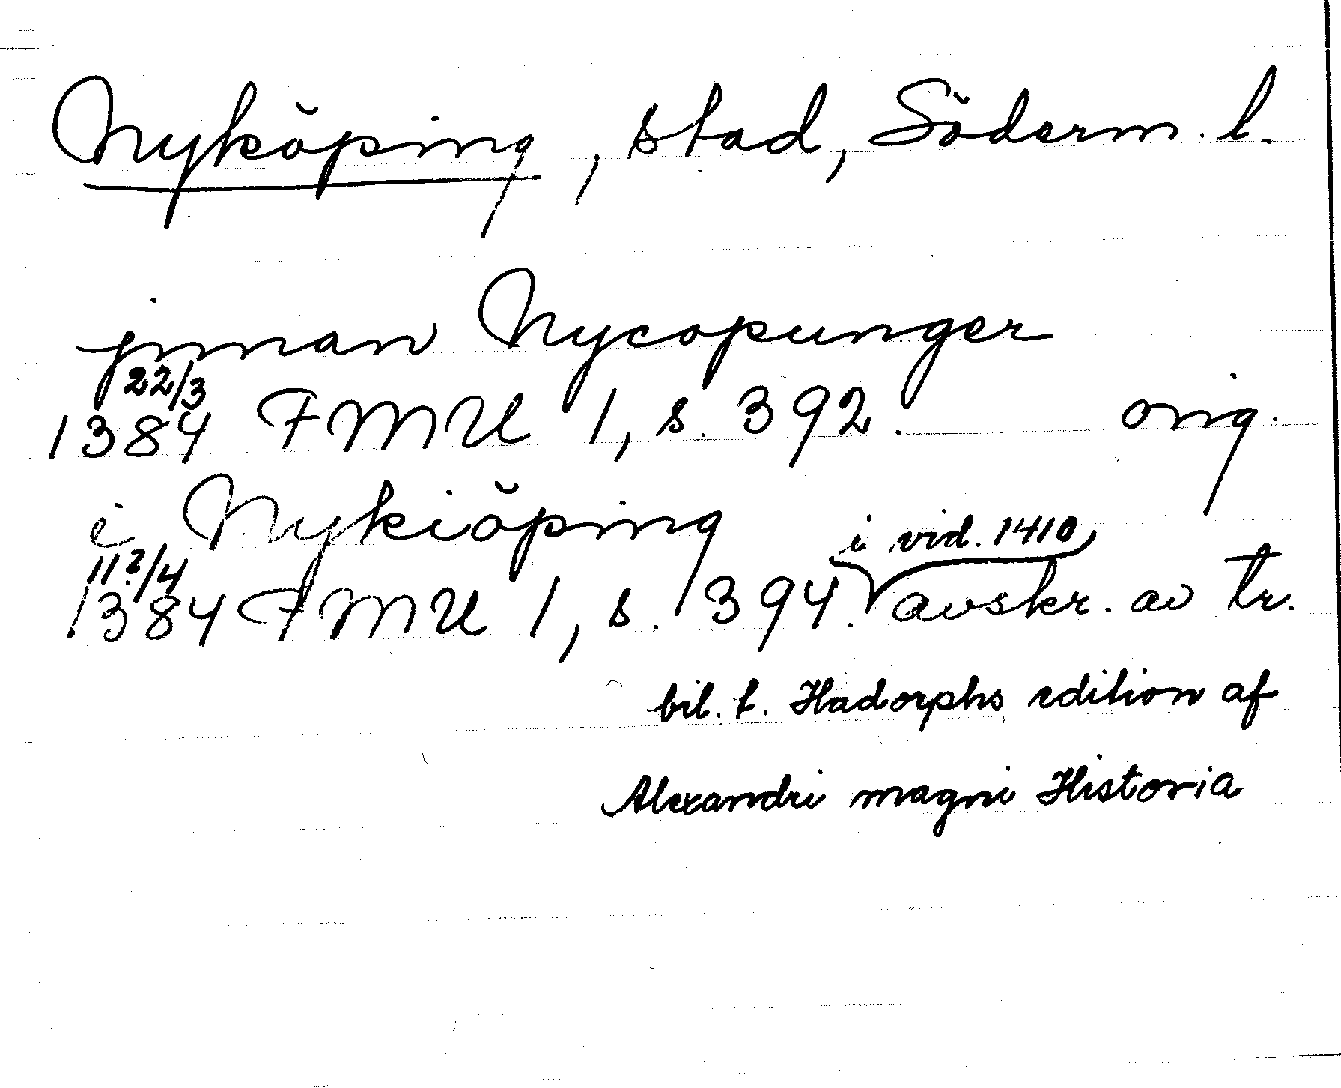 Nyköping, stad, Söderm. l.
jnnan Nycopunger
22/3
1384 FMU 1, s. 392. orig.
i Nykiöping
11?/4 i vid. 1410
1384 FMU 1, s. 394. avskr. av tr.
bil. t. Hadorphs edition af
Alexandri magni Historia